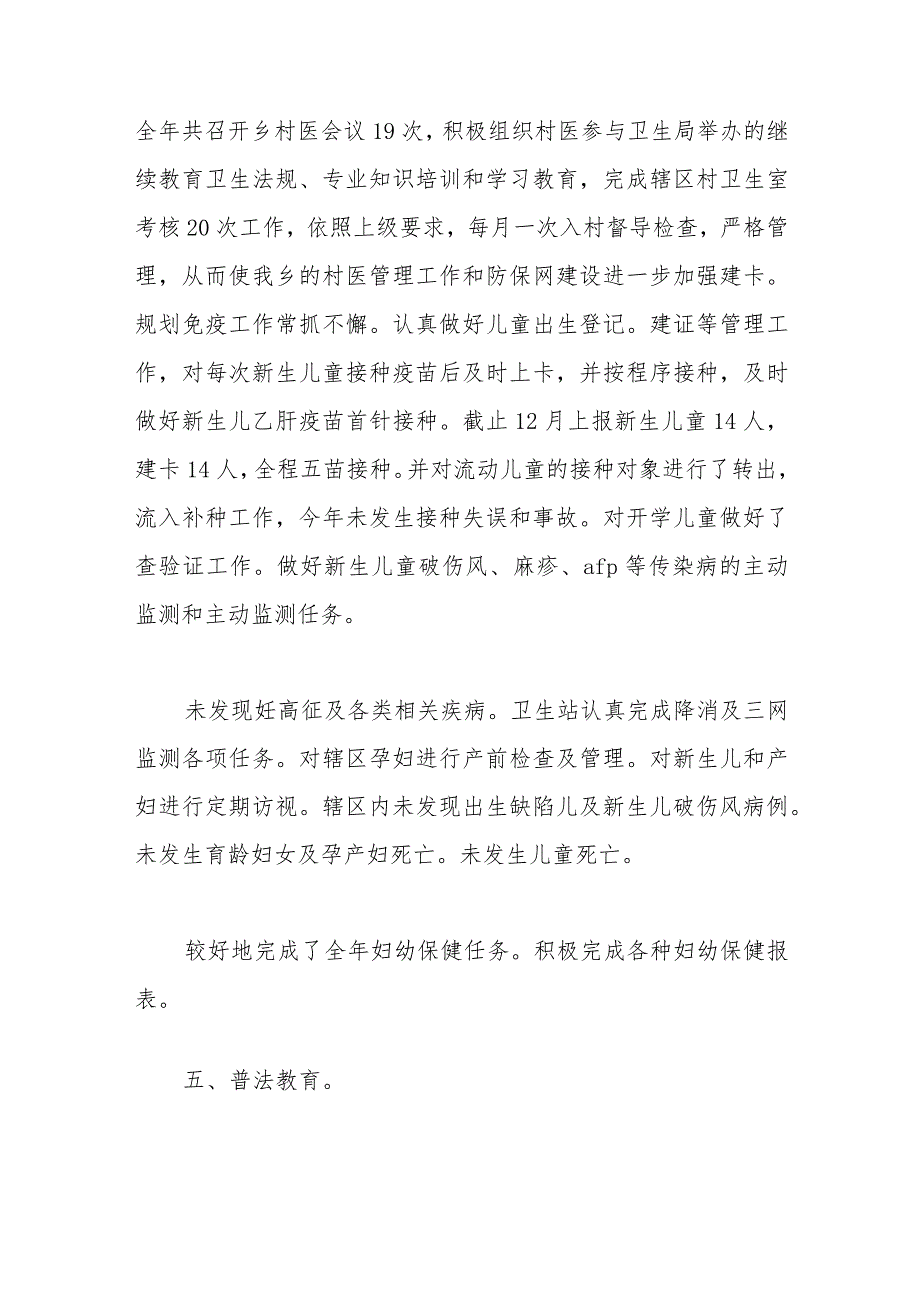 全年共召开乡村医会议19次，积极组织村医参与卫生局举办的继
续教育卫生法规、专业知识培训和学习教育，完成辖区村卫生室
考核20次工作，依照上级要求，每月一次入村督导检查，严格管
理，从而使我乡的村医管理工作和防保网建设进一步加强建卡。
规划免疫工作常抓不懈。认真做好儿童出生登记。建证等管理工
作，对每次新生儿童接种疫苗后及时上卡，并按程序接种，及时
做好新生儿乙肝疫苗首针接种。截止12月上报新生儿童14人，
建卡14人，全程五苗接种。并对流动儿童的接种对象进行了转出，
流入补种工作，今年未发生接种失误和事故。对开学儿童做好了
查验证工作。做好新生儿童破伤风、麻疹、afp等传染病的主动
监测和主动监测任务。
未发现妊高征及各类相关疾病。卫生站认真完成降消及三网
监测各项任务。对辖区孕妇进行产前检查及管理。对新生儿和产
妇进行定期访视。辖区内未发现出生缺陷儿及新生儿破伤风病例。
未发生育龄妇女及孕产妇死亡。未发生儿童死亡。
较好地完成了全年妇幼保健任务。积极完成各种妇幼保健报
表。
五、普法教育。